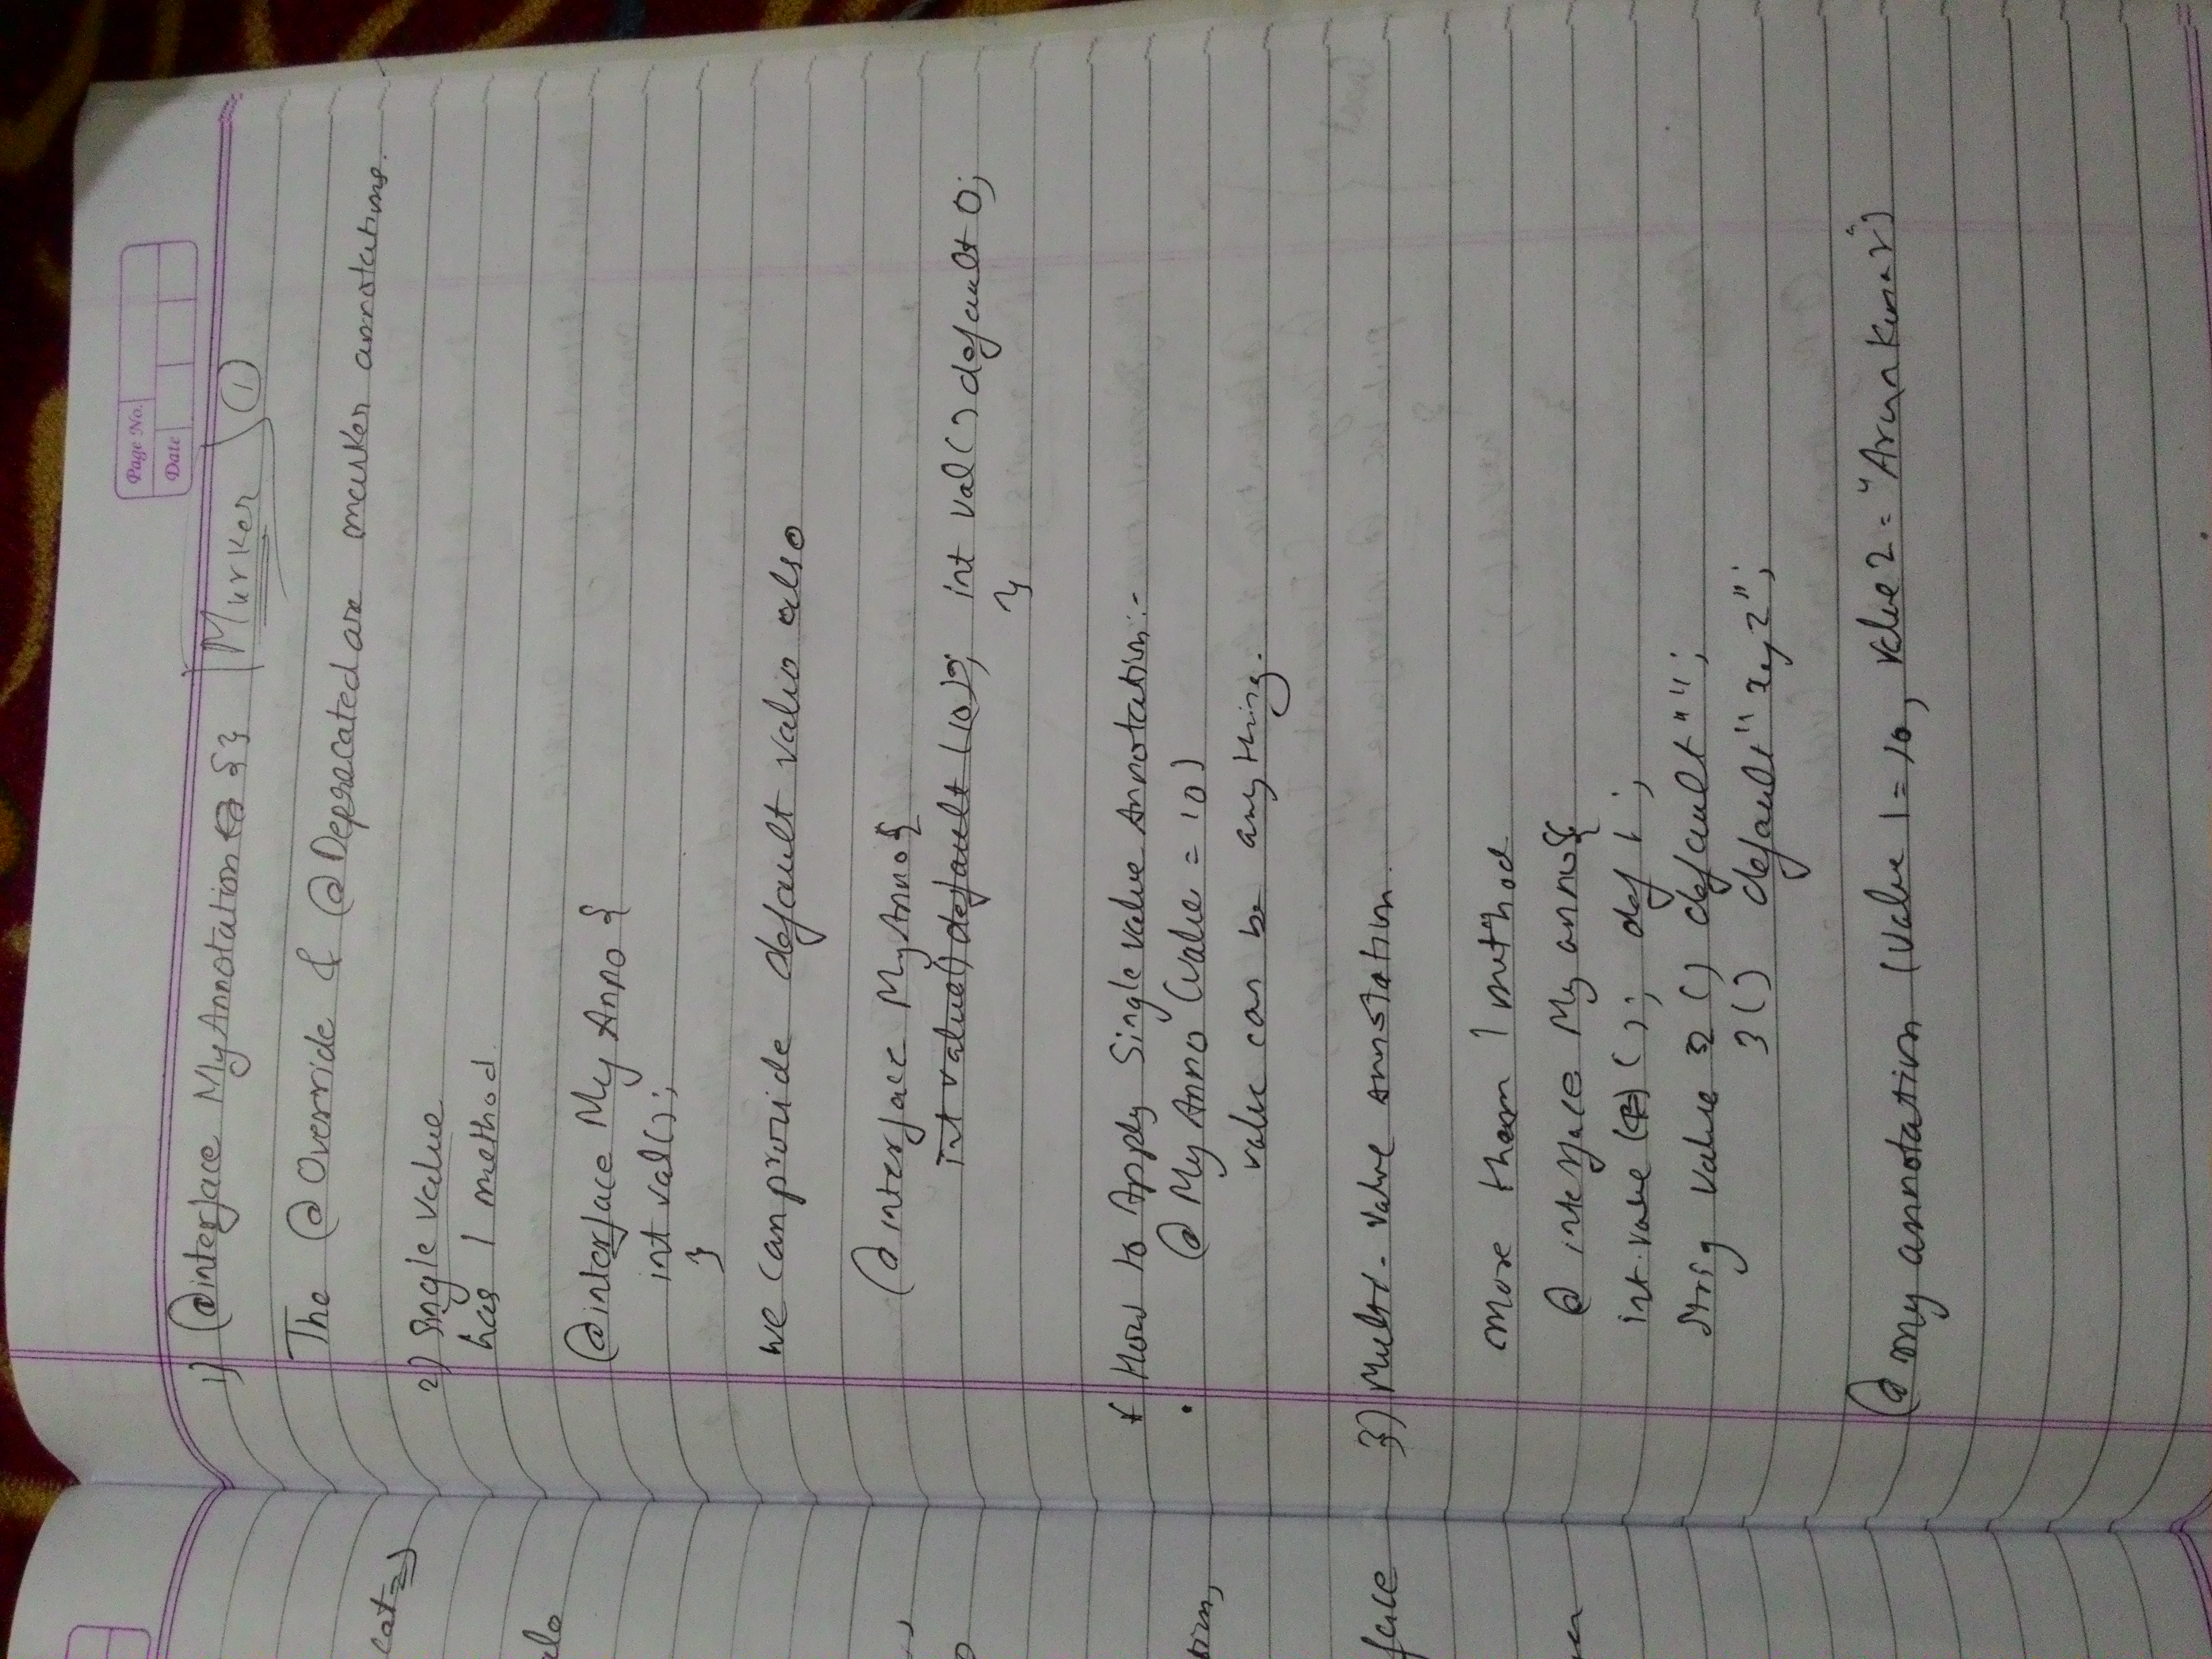 Page No.
Date
1) @interface MyAnnotation {} Marker ①
The @Override & @Deprecated are marker annotations.
2) Single Value
has 1 method.
@interface My Anno {
int val();
}
we can provide default value also
@interface MyAnno {
int value() default (10); int val() default 0;
}
* How to Apply Single value Annotation:-
• @ My Anno (value = 10)
value can be anything.
3) Multi-value annotation.
more than 1 method
@ interface My anno {
int value (); def 1;
String value 2 () default "";
3 () default "xyz";
@ my annotation (value 1 = 10, value 2 = "Arun Kumar")
cat
face